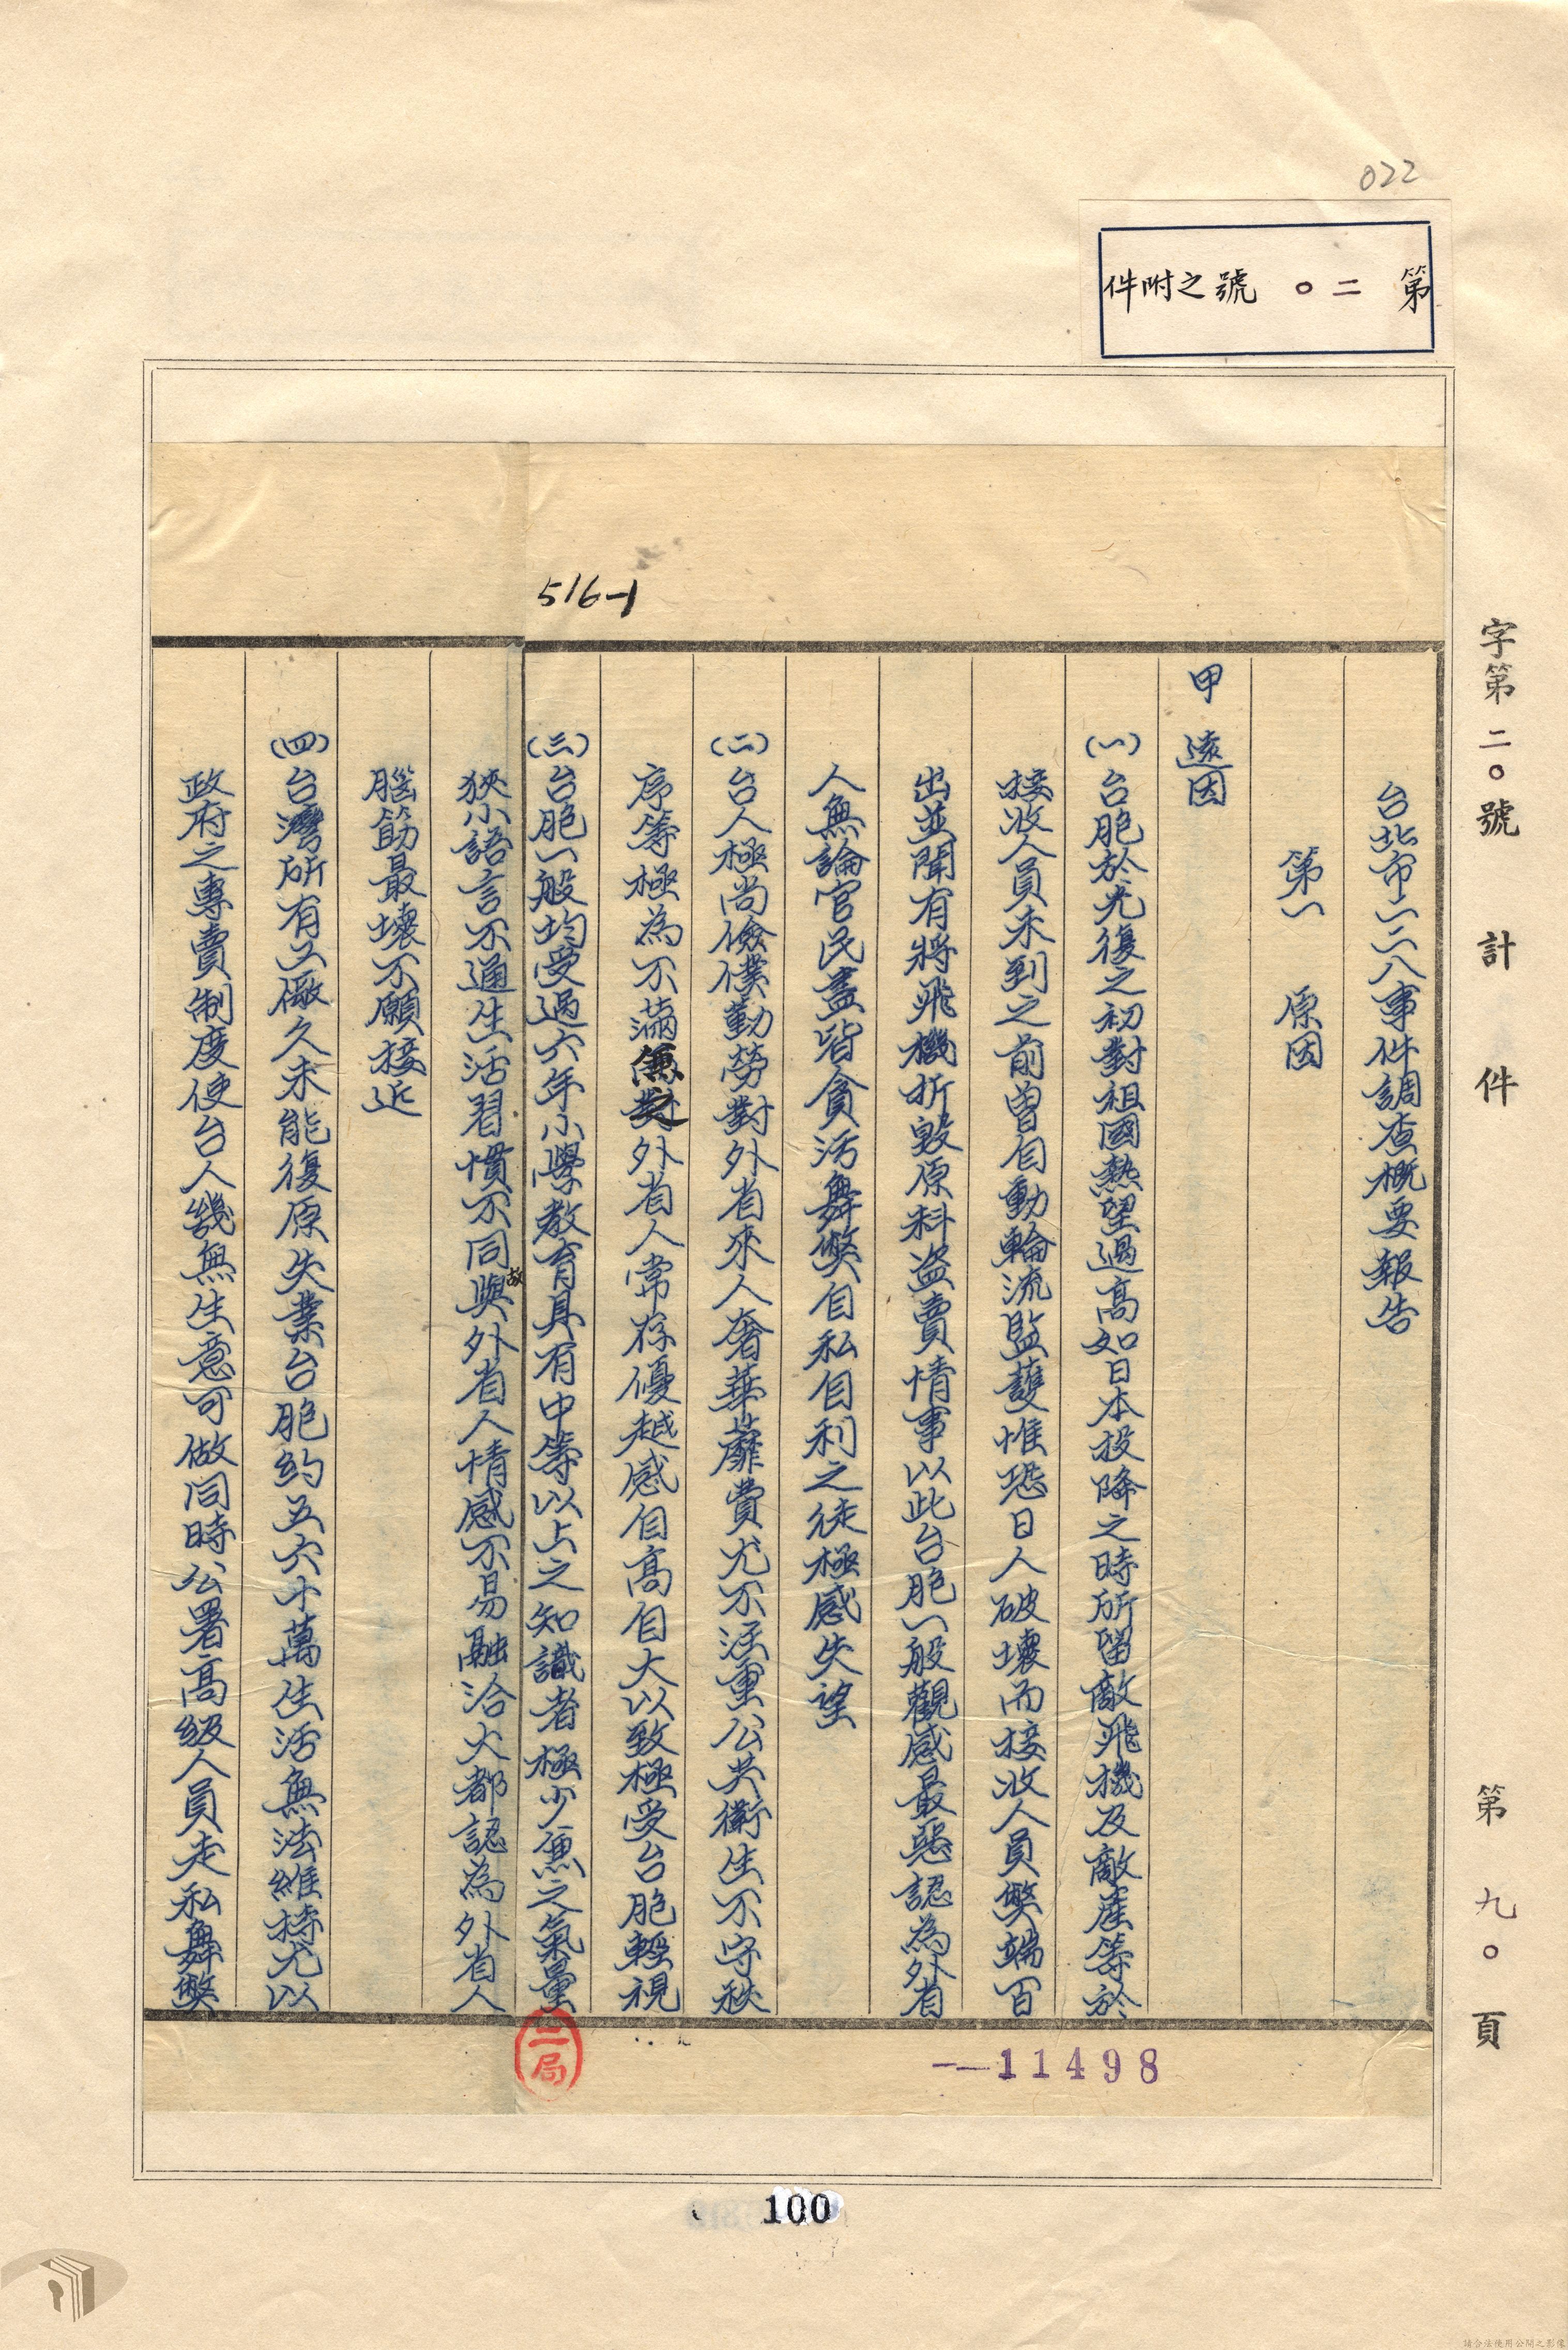 022
第二〇號之附件
字第二〇號 計 件 第九〇頁
516-1
台北市二二八事件調查概要報告
第一 原因
甲 遠因
(一)台胞於光復之初對祖國熱望過高如日本投降之時所留敵飛機及敵產等於
接收人員未到之前曾自動輪流監護惟恐日人破壞而接收人員獘端百
出並聞有將飛機折毀原料盜賣情事以此台胞一般觀感最惡認為外省
人無論官民盡皆貪污舞獘自私自利之徒極感失望
(二)台人極尚儉僕勤勞對外省來人奢華蘼費尤不注重公共衛生不守秩
序等極為不滿兼之外省人常存優越感自高自大以致極受台胞輕視
(三)台胞一般均受過六年小學教育具有中等以上之知識者極少兼之氣量
狹小語言不通生活習慣不同故與外省人情感不易融洽大都認為外省人
腦筋最壞不願接近
(四)台灣所有工廠久未能復原失業台胞約五六十萬生活無法維持尤以
政府之專賣制度使台人幾無生意可做同時公署高級人員走私舞獘
二局
11498
100